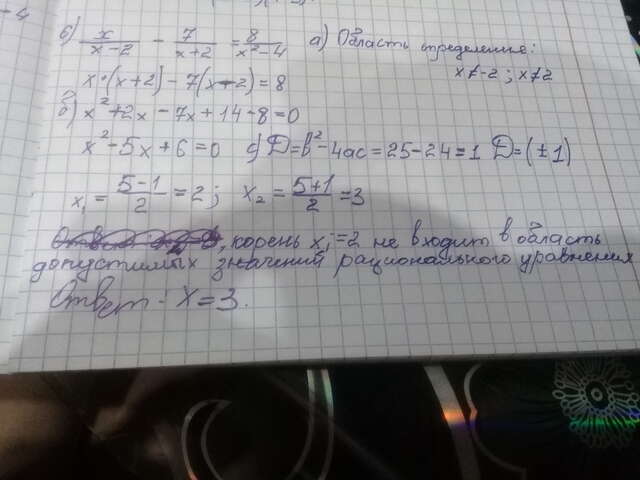 -4
б) x/(x-2) - 7/(x+2) = 8/(x²-4) а) Область определения:
x≠-2; x≠2
x·(x+2)-7(x-2)=8
б) x²+2x-7x+14-8=0
x²-5x+6=0 с) D=b²-4ac=25-24=1 D=(±1)
x₁=(5-1)/2=2; x₂=(5+1)/2=3
, корень x₁=2 не входит в область
допустимых значений рационального уравнения
Ответ: x=3.